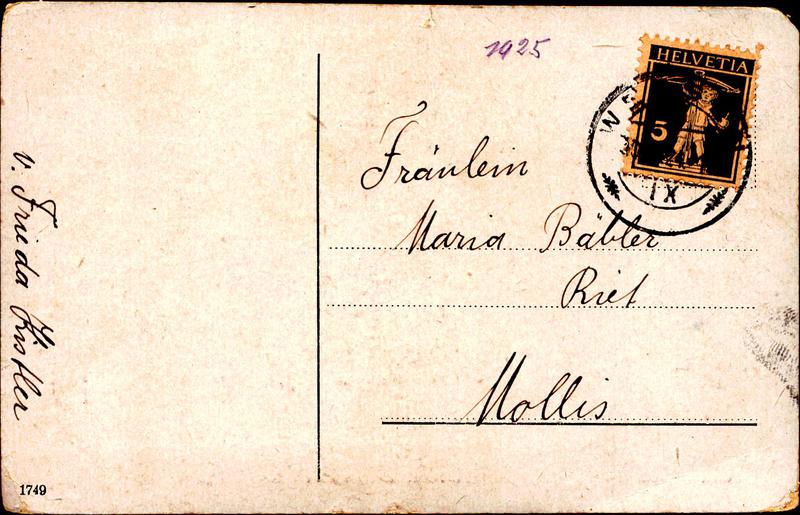 1925
HELVETIA
5
IX
Fräulein
Maria Bäbler
Riet
Mollis
v. Frieda Kistler
1749